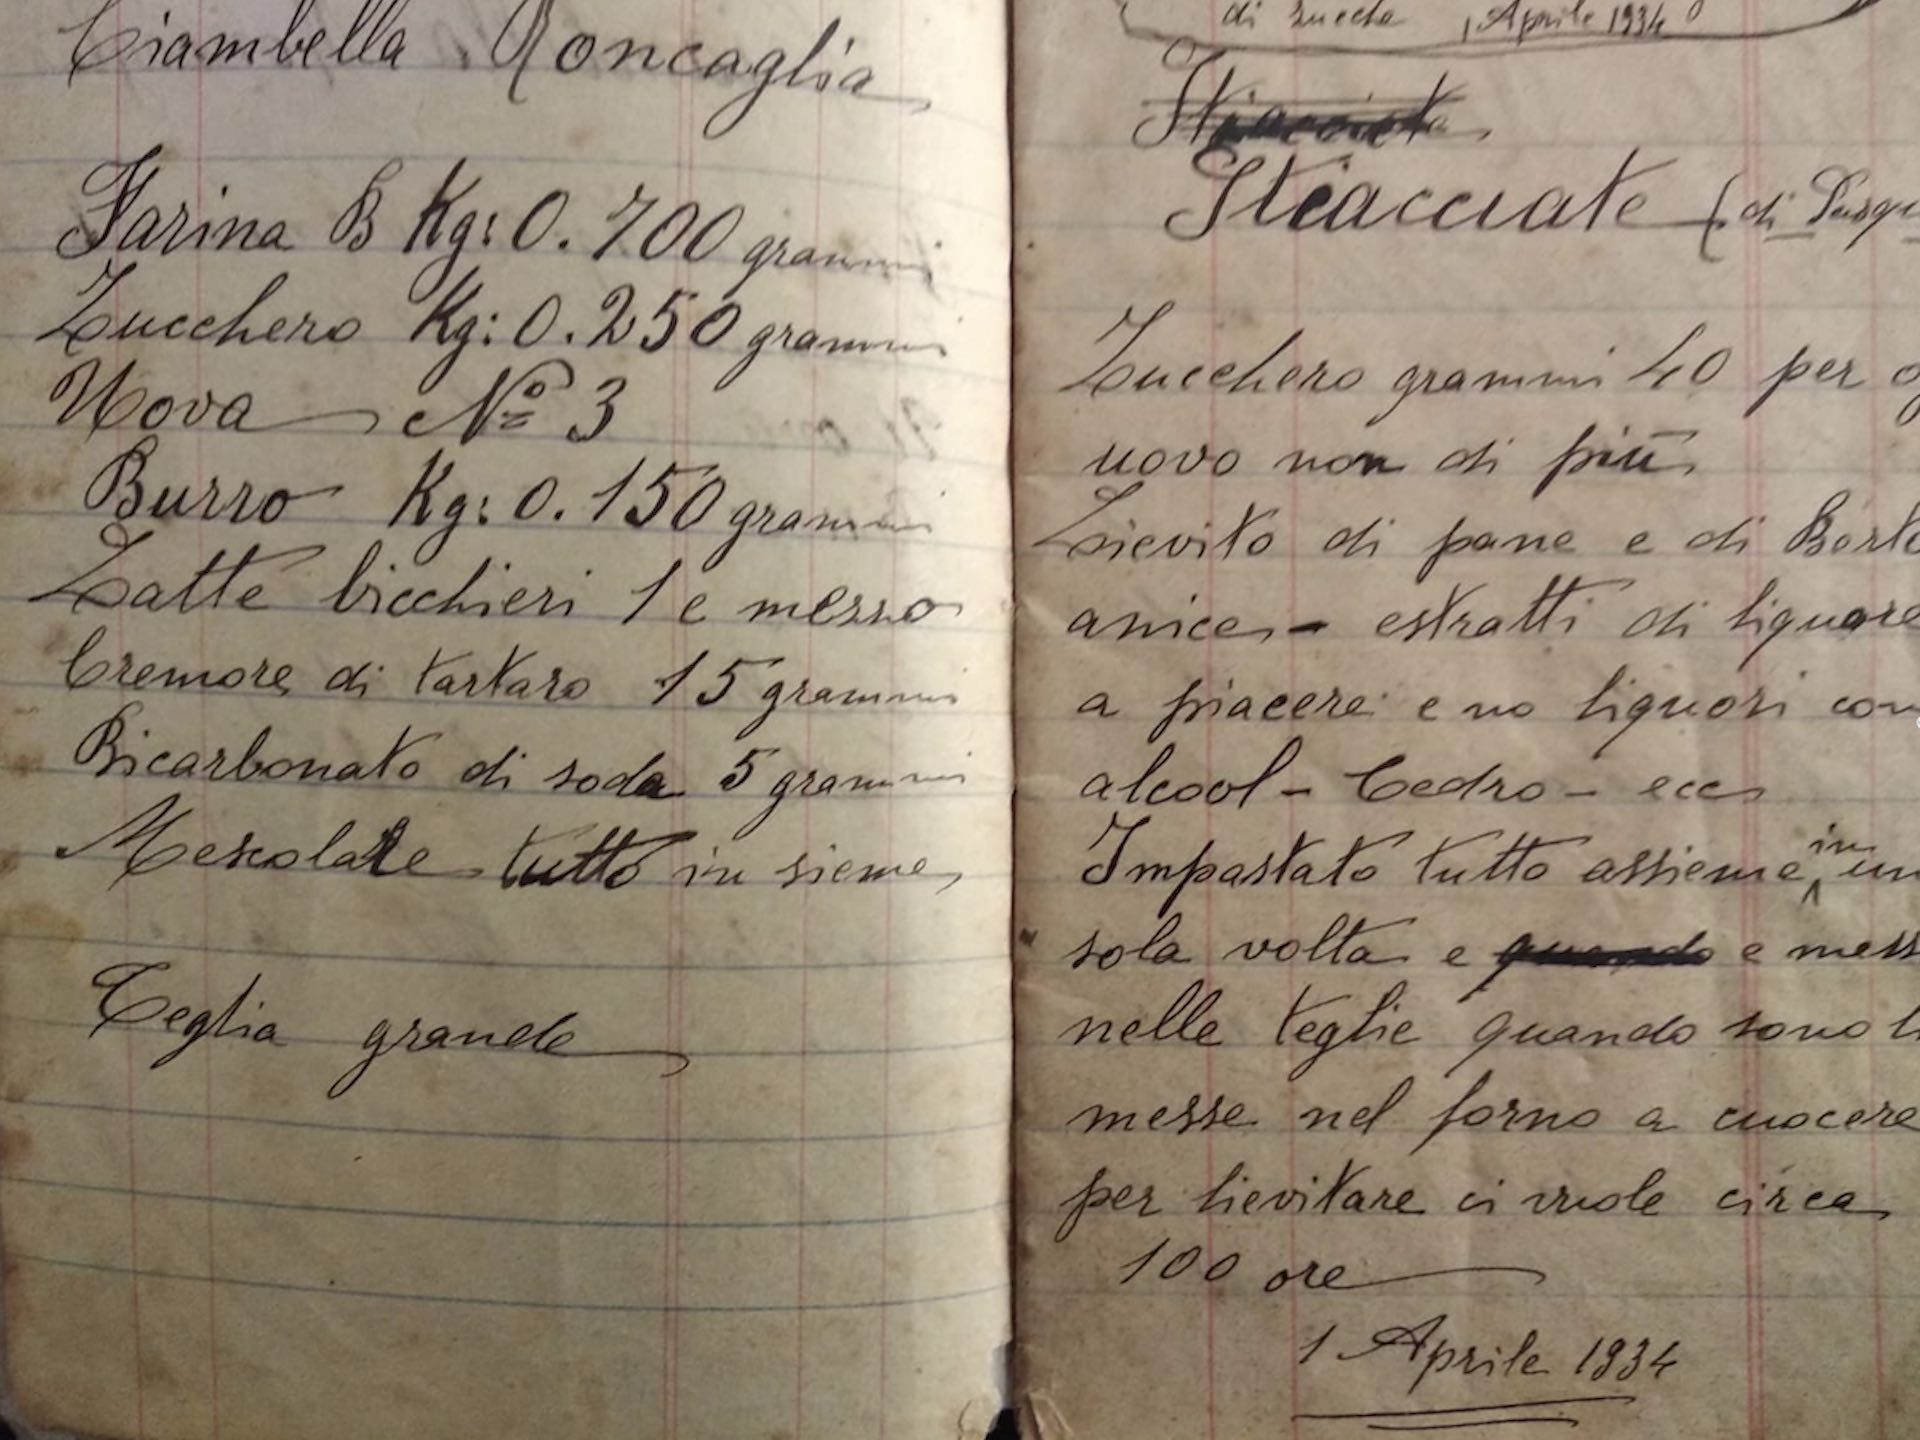 Ciambella Roncaglia
Farina B Kg: 0.700 grammi
Zucchero Kg: 0.250 grammi
Uova Nº 3
Burro Kg: 0.150 grammi
Latte bicchieri 1 e mezzo
Cremore di tartaro 15 grammi
Bicarbonato di soda 5 grammi
Mescolate tutto in sieme
Teglia grande
di zucche 1 Aprile 1934
Stiacciate (di Pasqu
Zucchero grammi 40 per og
uovo non di più
Lievito di pane e di Borto
anice - estratti di liquore
a piacere e no liquori con
alcool - Cedro - ecc
Impastato tutto assieme in un
sola volta e e mess
nelle teglie quando sono li
messe nel forno a cuocere
per lievitare ci vuole circa
100 ore
1 Aprile 1934